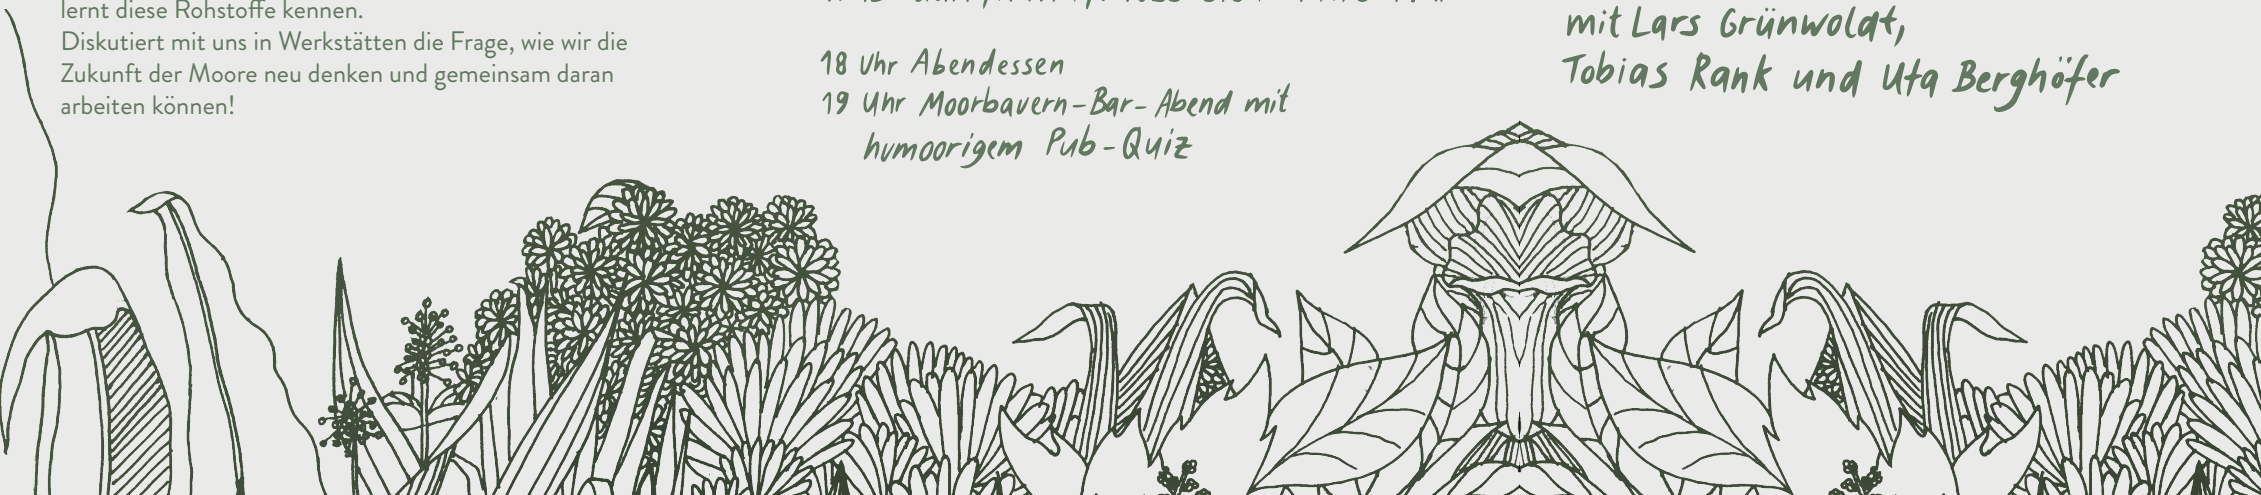 lernt diese Rohstoffe kennen.
Diskutiert mit uns in Werkstätten die Frage, wie wir die
Zukunft der Moore neu denken und gemeinsam daran
arbeiten können!
18 Uhr Abendessen
19 Uhr Moorbauern-Bar-Abend mit
humoorigem Pub-Quiz
mit Lars Grünwoldt,
Tobias Rank und Uta Berghöfer